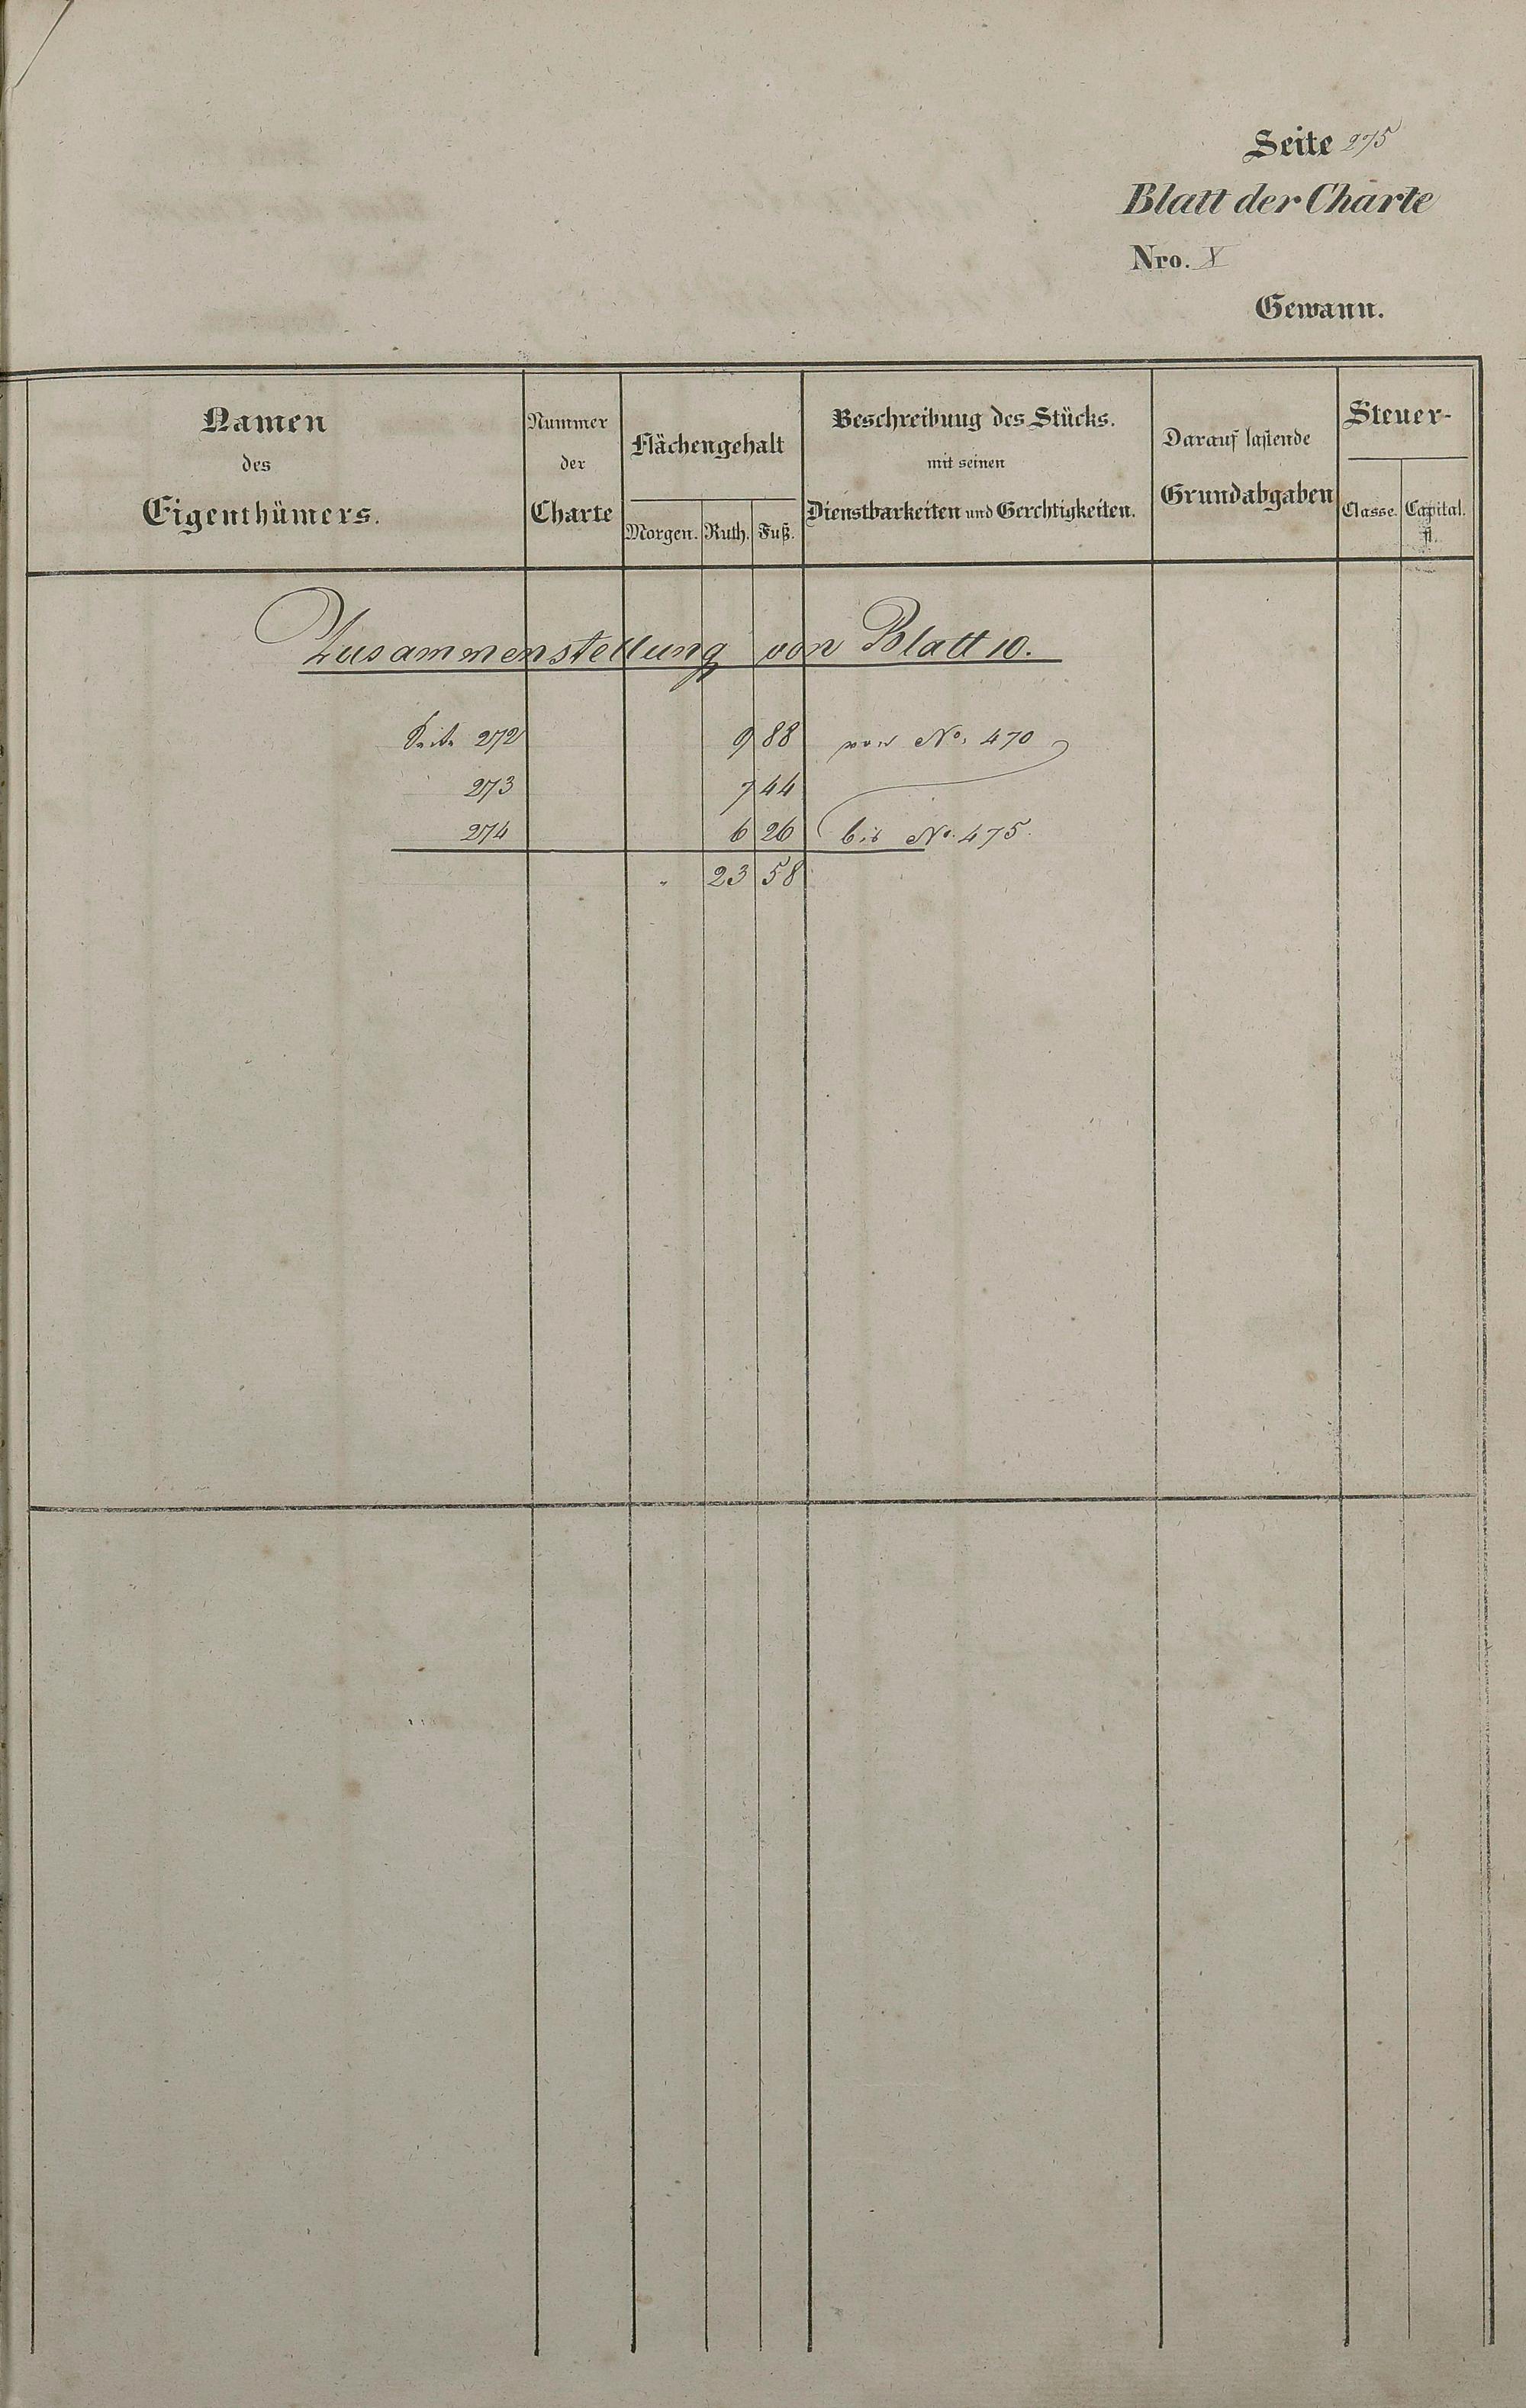 Seite 275
Blatt der Charte
Nro. X
Gewann.
Namen
des
Eigenthümers.
Nummer
der
Charte
Flächengehalt
Morgen. Ruth. Fuß.
Beschreibung des Stücks.
mit seinen
Dienstbarkeiten und Gerechtigkeiten.
Darauf lastende
Grundabgaben
Steuer-
Classe. Capital.
fl.
Zusammenstellung von Blatt 10.
Seite 272 9 88 von No. 470
273 7 44
274 6 26 bis No. 475.
" 23 58